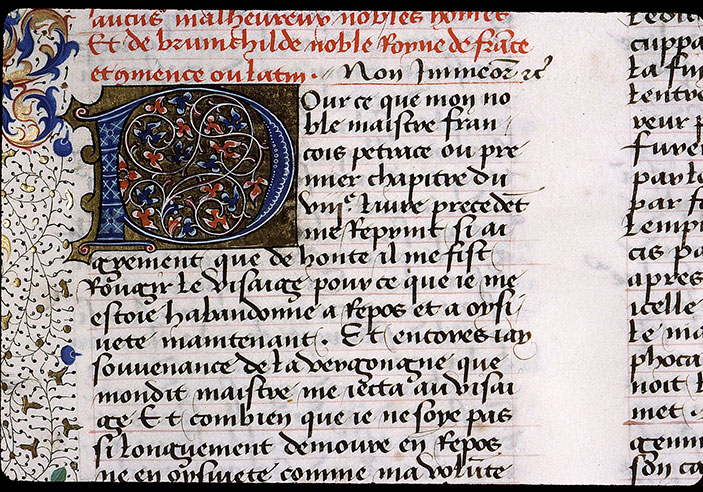 aucus malheureux nobles hom̄es
Et de brunichilde noble Royne de frāce
et cōmence ou latin. Non Immeor̄ ꝛc̄
Pour ce que mon no
ble maistre fran
cois petrace ou pre
mier chapitre du
viiiᵉ livre precedēt
me Reprint si ai
grement que de honte il me fist
Rougir le visaige pour ce que ie me
estoie habandonne a Repos et a oysi
vete maintenant. Et encores iay
souvenance de la vergongne que
mondit maistre me iecta au visai
ge Et combien que ie ne soye pas
si longuement demoure en Repos
ne en oysivete comme ma volūte
cuppa
la fu
lentre
reur p
furen
par le
par fo
lempi
cis pa
apres
icelle
le ma
phoca
noit l
met.
genu
son ca